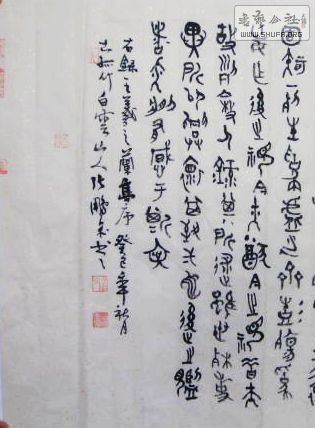 書藝公社
WWW.SHUFR.ORG
固知一死生為虛誕齊彭殤為
妄作後之視今亦猶今之視昔悲夫
故列敘時人錄其所述雖世殊事
異所以興懷其致一也後之覽
者亦將有感于斯文
右錄王羲之蘭亭序癸巳年秋月
古孤竹白雲山人張鵬書